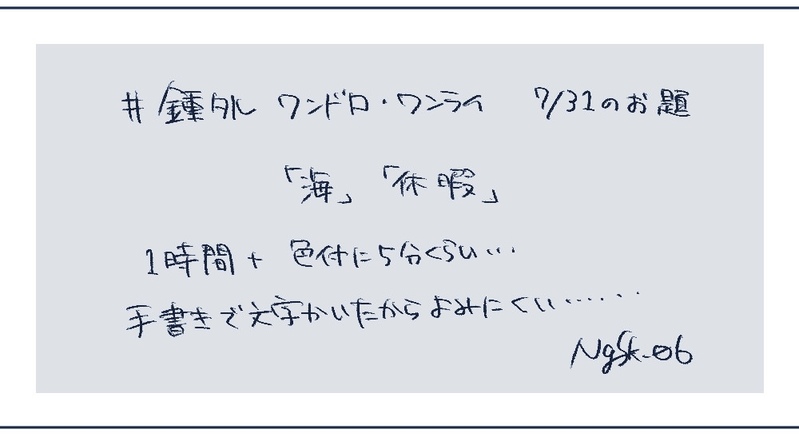 #鍾タル ワンドロ・ワンライ 7/31のお題
「海」「休暇」
1時間+ 色付に5分くらい…
手書きで文字かいたからよみにくい……
NgSk_06